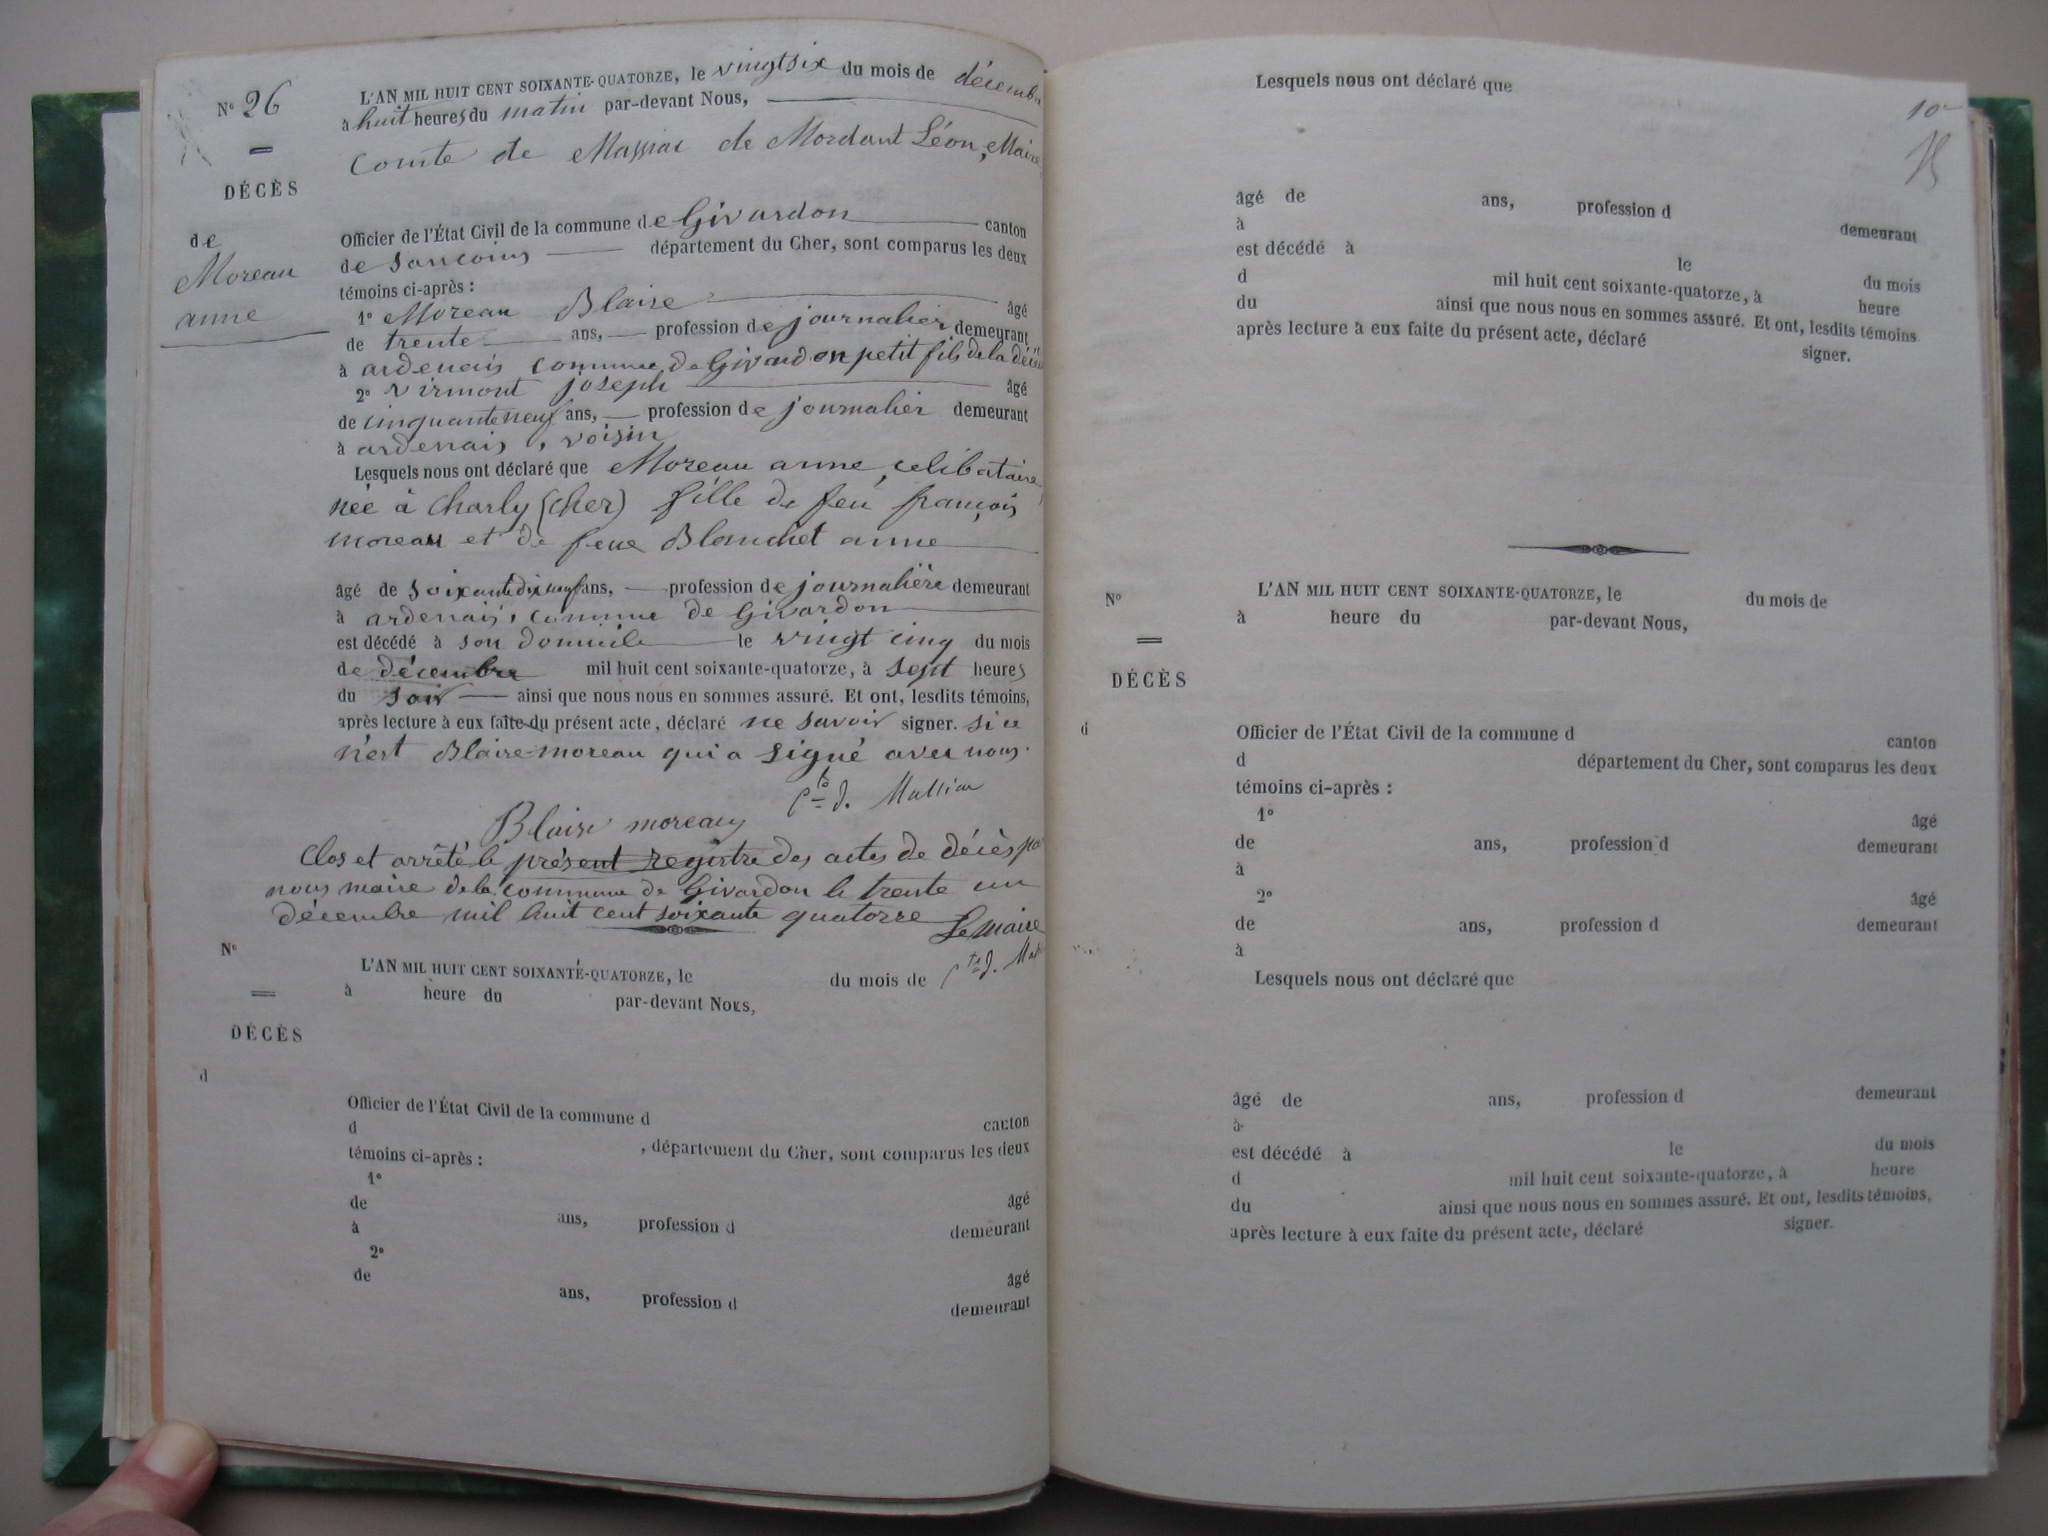 N° 26
DÉCÈS
de
Moreau
anne
L'AN MIL HUIT CENT SOIXANTE-QUATORZE, le vingtsix du mois de décembre
à huit heures du matin par-devant Nous,
Comte de Massiac de Mordant Léon, Maire
Officier de l'État Civil de la commune de Givardon canton
de Sancoins département du Cher, sont comparus les deux
témoins ci-après :
1° Moreau Blaise âgé
de trente ans, profession de journalier demeurant
à ardenais commune de Givardon petit fils de la
2° Virmont joseph âgé
de cinquanteneuf ans, profession de journalier demeurant
à ardenais, voisin
Lesquels nous ont déclaré que Moreau anne, celibataire
née à Charly (cher) fille de feu françois
moreau et de feue Blanchet anne
âgé de soixantedixneuf ans, profession de journalière demeurant
à ardenais, commune de Givardon
est décédé à son domicile le vingt cinq du mois
de décembre mil huit cent soixante-quatorze, à sept heures
du soir ainsi que nous nous en sommes assuré. Et ont, lesdits témoins,
après lecture à eux faite du présent acte, déclaré ne savoir signer. si ce
n'est Blaise moreau qui a signé avec nous.
Cte d. Massiac
Blaise moreau
Clos et arrêté le présent registre des actes de décès par
nous maire de la commune de Givardon le trente un
décembre mil huit cent soixante quatorze Le maire
Cte d.
N°
DÉCÈS
d
L'AN MIL HUIT CENT SOIXANTE-QUATORZE, le du mois de
à heure du par-devant Nous,
Officier de l'État Civil de la commune d canton
d , département du Cher, sont comparus les deux
témoins ci-après :
1° âgé
de ans, profession d demeurant
à
2° âgé
de ans, profession d demeurant
Lesquels nous ont déclaré que
10
âgé de ans, profession d demeurant
à
est décédé à le du mois
d mil huit cent soixante-quatorze, à heure
du ainsi que nous nous en sommes assuré. Et ont, lesdits témoins
après lecture à eux faite du présent acte, déclaré signer.
N°
DÉCÈS
d
L'AN MIL HUIT CENT SOIXANTE-QUATORZE, le du mois de
à heure du par-devant Nous,
Officier de l'État Civil de la commune d canton
d département du Cher, sont comparus les deux
témoins ci-après :
1° âgé
de ans, profession d demeurant
à
2° âgé
de ans, profession d demeurant
à
Lesquels nous ont déclaré que
âgé de ans, profession d demeurant
à
est décédé à le du mois
d mil huit cent soixante-quatorze, à heure
du ainsi que nous nous en sommes assuré. Et ont, lesdits témoins,
après lecture à eux faite du présent acte, déclaré signer.